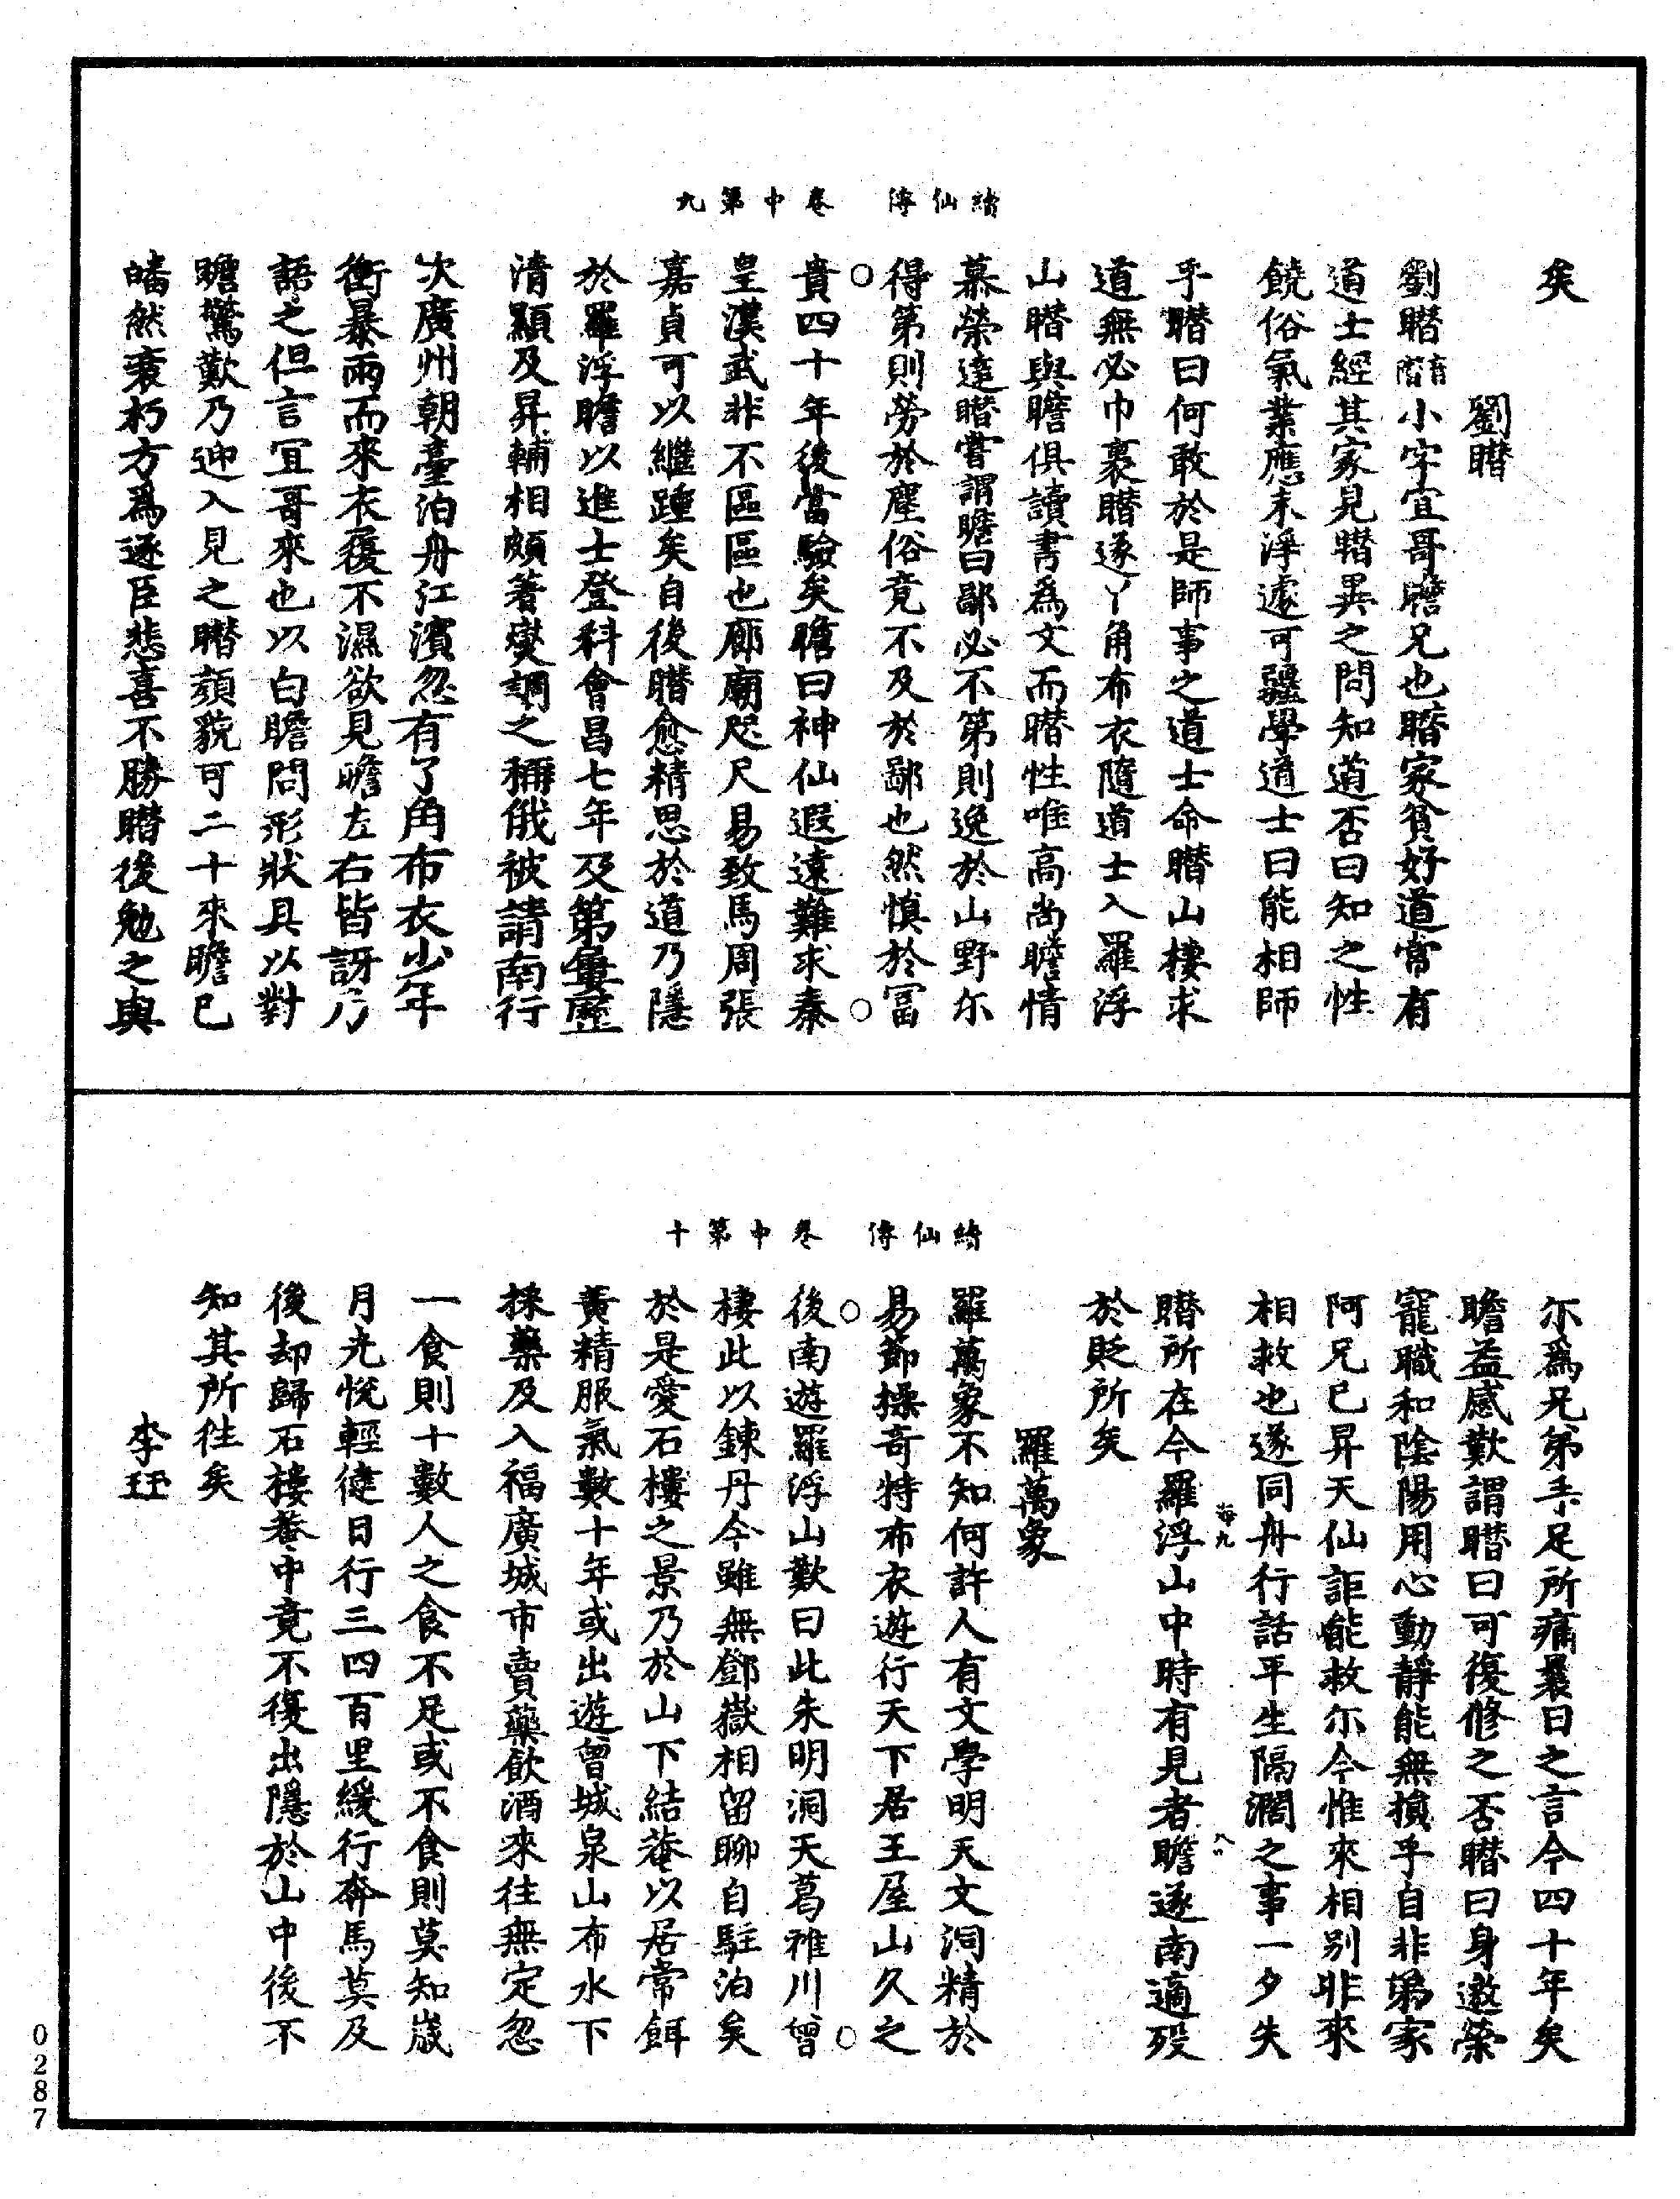 續仙傳 卷中第九
矣
劉𣋌
劉𣋌音潛小字宜哥瞻兄也𣋌家貧好道常有
道士經其家見𣋌異之問知道否曰知之性
饒俗氣業應未淨遽可彊學道士曰能相師
乎𣋌曰何敢於是師事之道士命𣋌山棲求
道無必巾裹𣋌遂丫角布衣隨道士入羅浮
山𣋌與瞻俱讀書爲文而𣋌性唯高尚瞻情
慕榮達𣋌嘗謂瞻曰鄙必不第則逸於山野尔
得第則勞於塵俗竟不及於鄙也然慎於冨
貴四十年後當驗矣瞻曰神仙遐遠難求秦
皇漢武非不區區也廊廟咫尺易致馬周張
嘉貞可以繼踵矣自後𣋌愈精思於道乃隱
於羅浮瞻以進士登科會昌七年及第彙歷
清顯及昇輔相頗著燮調之稱俄被請南行
次廣州朝臺泊舟江濱忽有丫角布衣少年
衝暴雨而來衣履不濕欲見瞻左右皆訝乃
語之但言宜哥來也以白瞻問形狀具以對
瞻驚歎乃迎入見之𣋌顏貌可二十來瞻已
皤然衰朽方爲逐臣悲喜不勝𣋌後勉之與
續仙傳 卷中第十
尔爲兄弟手足所痛曩日之言今四十年矣
瞻益感歎謂𣋌曰可復修之否𣋌曰身邀榮
寵職和陰陽用心動靜能無損乎自非弟家
阿兄已昇天仙詎能救尔今惟來相别非來
相救也遂同舟行話平生隔濶之事一夕失
𣋌所在今羅浮山中時有見者瞻遂南適殁
於貶所矣
羅萬象
羅萬象不知何許人有文學明天文洞精於
易節操奇特布衣遊行天下居王屋山久之
後南遊羅浮山歎曰此朱明洞天葛稚川曾
棲此以鍊丹今雖無鄧嶽相留聊自駐泊矣
於是愛石樓之景乃於山下結菴以居常餌
黄精服氣數十年或出遊曾城泉山布水下
採藥及入福廣城市賣藥飲酒來往無定忽
一食則十數人之食不足或不食則莫知歲
月光悦輕健日行三四百里緩行奔馬莫及
後却歸石樓菴中竟不復出隱於山中後不
知其所往矣
李珏
0287